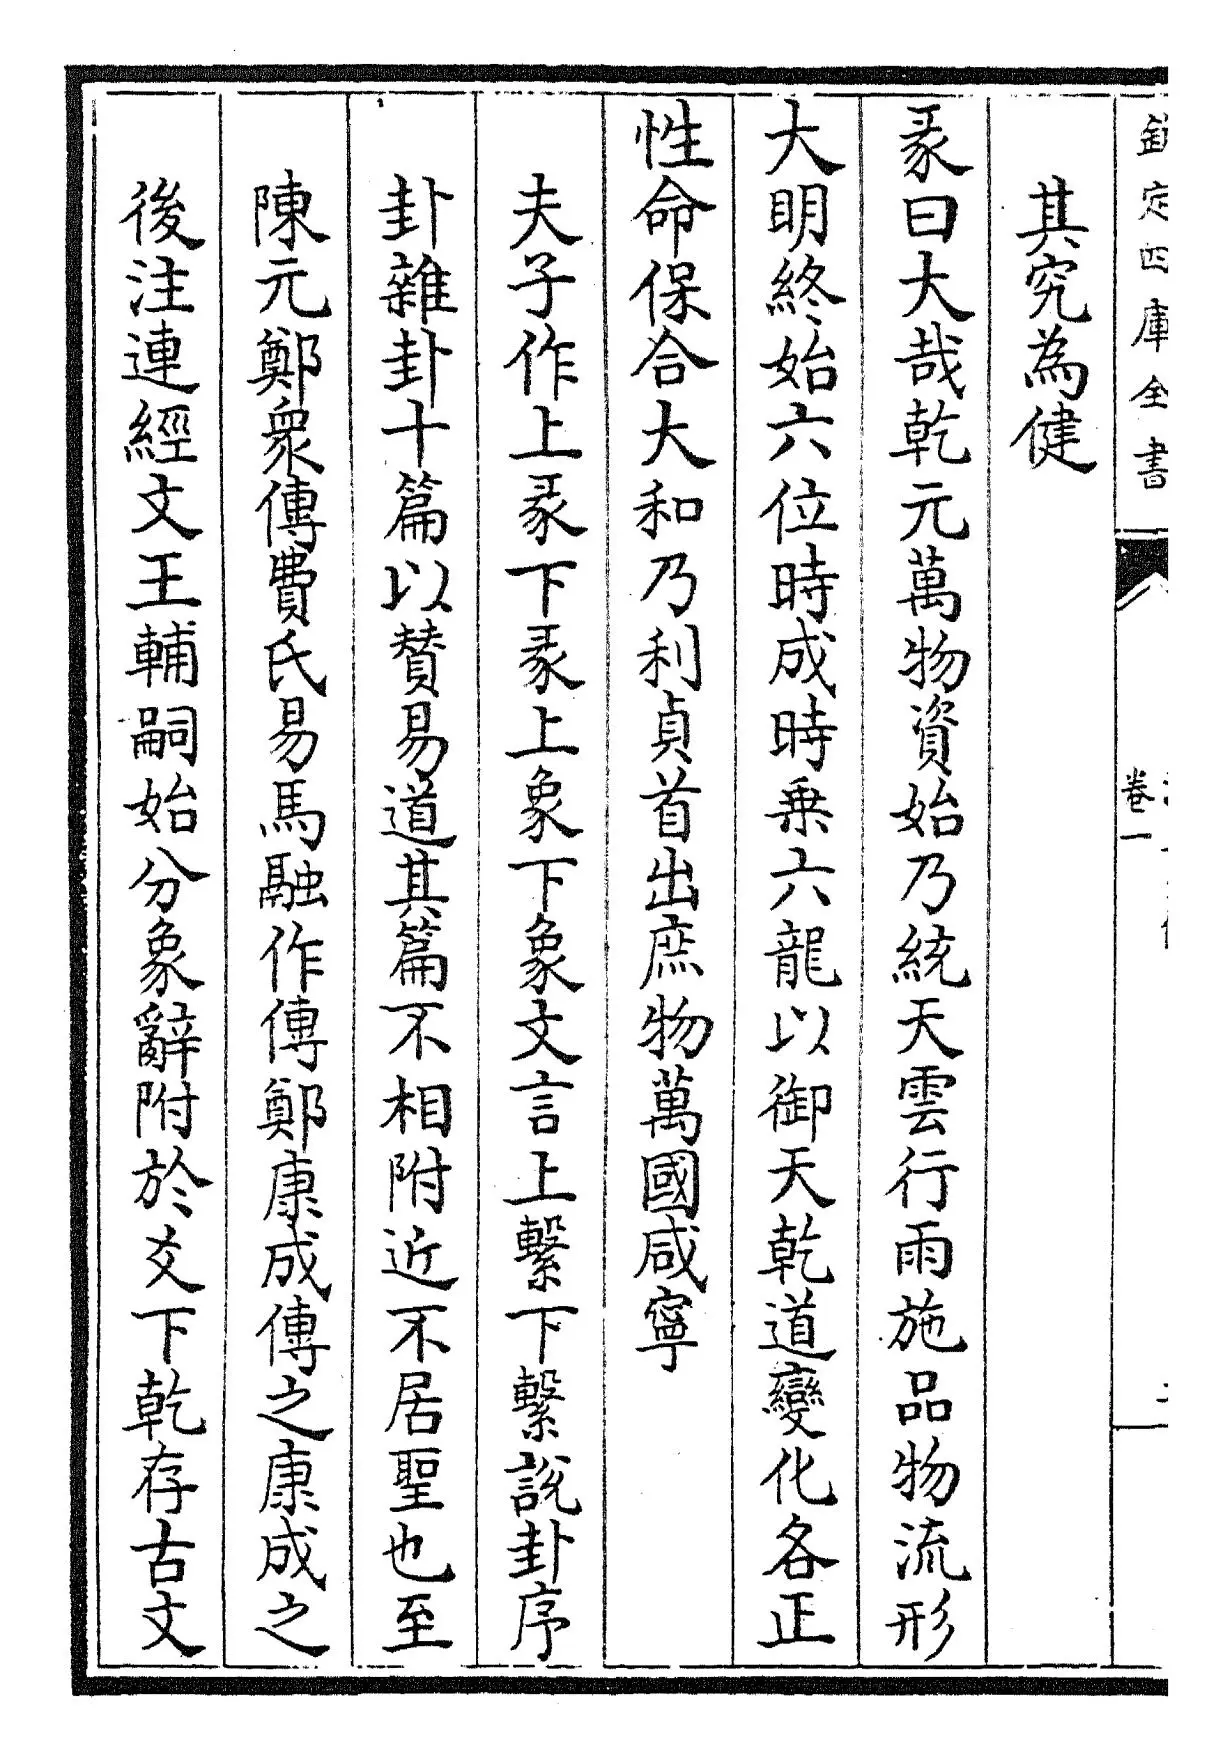 欽定四庫全書
卷一
其究為健
彖曰大哉乾元萬物資始乃統天雲行雨施品物流形
大明終始六位時成時乗六龍以御天乾道變化各正
性命保合大和乃利貞首出庶物萬國咸寧
夫子作上彖下彖上象下象文言上繫下繫說卦序
卦雜卦十篇以賛易道其篇不相附近不居聖也至
陳元鄭衆傳費氏易馬融作傳鄭康成傳之康成之
後注連經文王輔嗣始分象辭附於爻下乾存古文